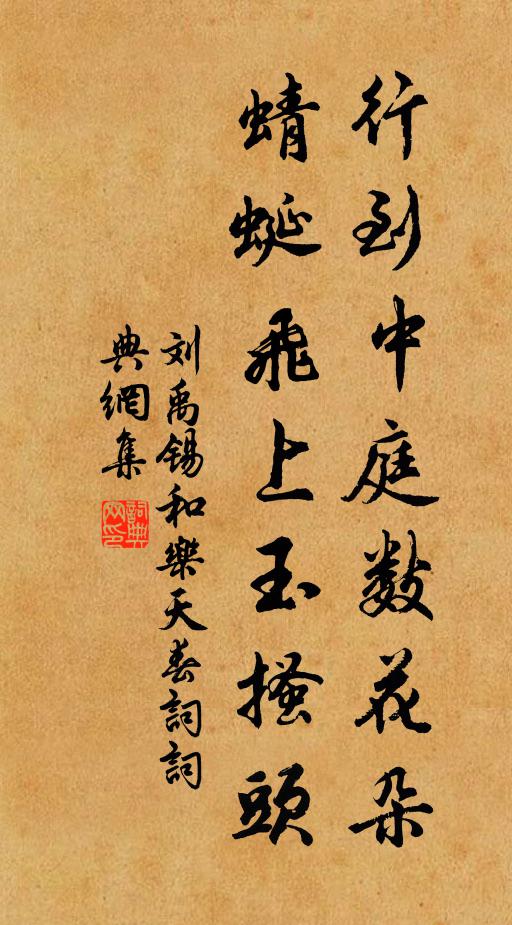 行到中庭數花朵
蜻蜓飛上玉搔頭
刘禹锡和樂天春詞詞
典網集
詞典网印